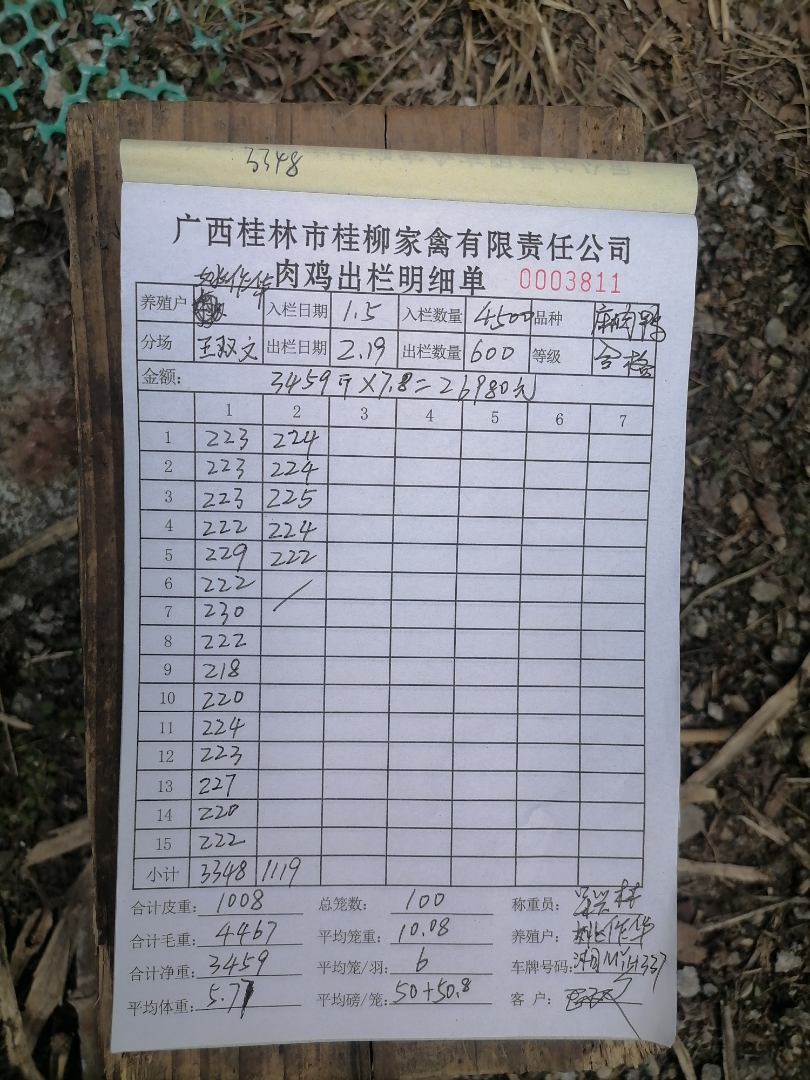 3348
广西桂林市桂柳家禽有限责任公司
肉鸡出栏明细单 0003811
养殖户 姚作华 入栏日期 1.5 入栏数量 4500 品种 麻肉鸭
分场 王双文 出栏日期 2.19 出栏数量 600 等级 合格
金额: 3459斤×7.8=26980元
1 2 3 4 5 6 7
1 223 224
2 223 224
3 223 225
4 222 224
5 229 222
6 222 /
7 230
8 222
9 218
10 220
11 224
12 223
13 227
14 220
15 222
小计 3348 1119
合计皮重: 1008 总笼数: 100 称重员:
合计毛重: 4467 平均笼重: 10.08 养殖户: 姚作华
合计净重: 3459 平均笼/羽: 6 车牌号码:
平均体重: 5.77 平均磅/笼: 50+50.8 客户: